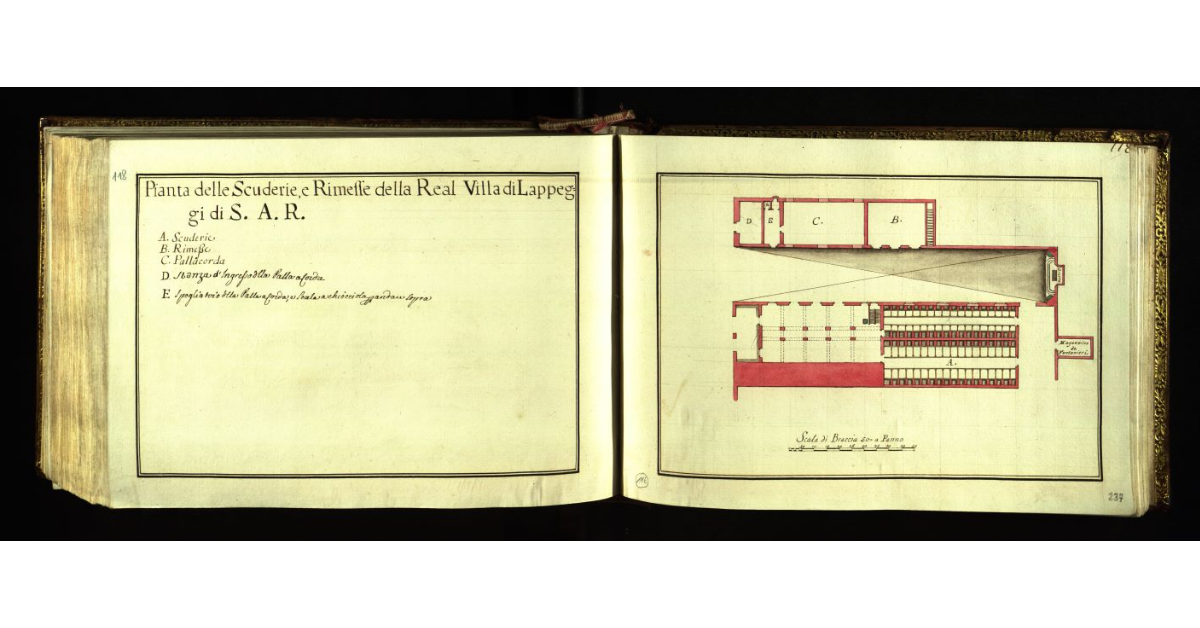 118
Pianta delle Scuderie, e Rimesse della Real Villa di Lappeg=
gi di S. A. R.
A. Scuderie
B. Rimesse
C. Pallacorda
D Stanza d'Ingresso della Palla a Corda
E Spogliatoio della Palla a Corda, e Scala a chiocciola
118
D.
E
C.
B.
Magazzino
de
A.
Scala di Braccia 50 a Panno
237